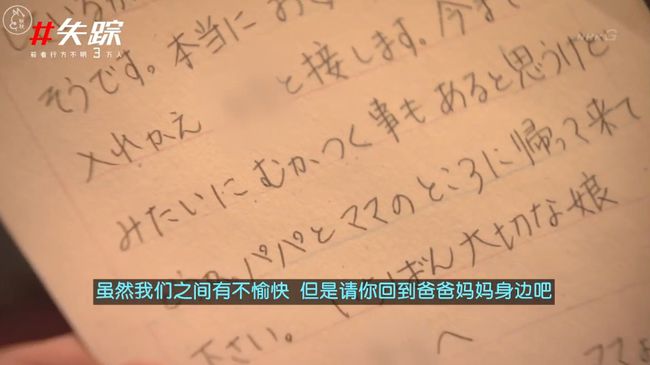 #失踪
若者行方不明3万人
そうです。本当に
入れかえ と接します。今ま
みたいにむかつく事もあると思うけど
パパとママのところに帰って来て
ばん大切な娘
下さい。
へ
虽然我们之间有不愉快 但是请你回到爸爸妈妈身边吧